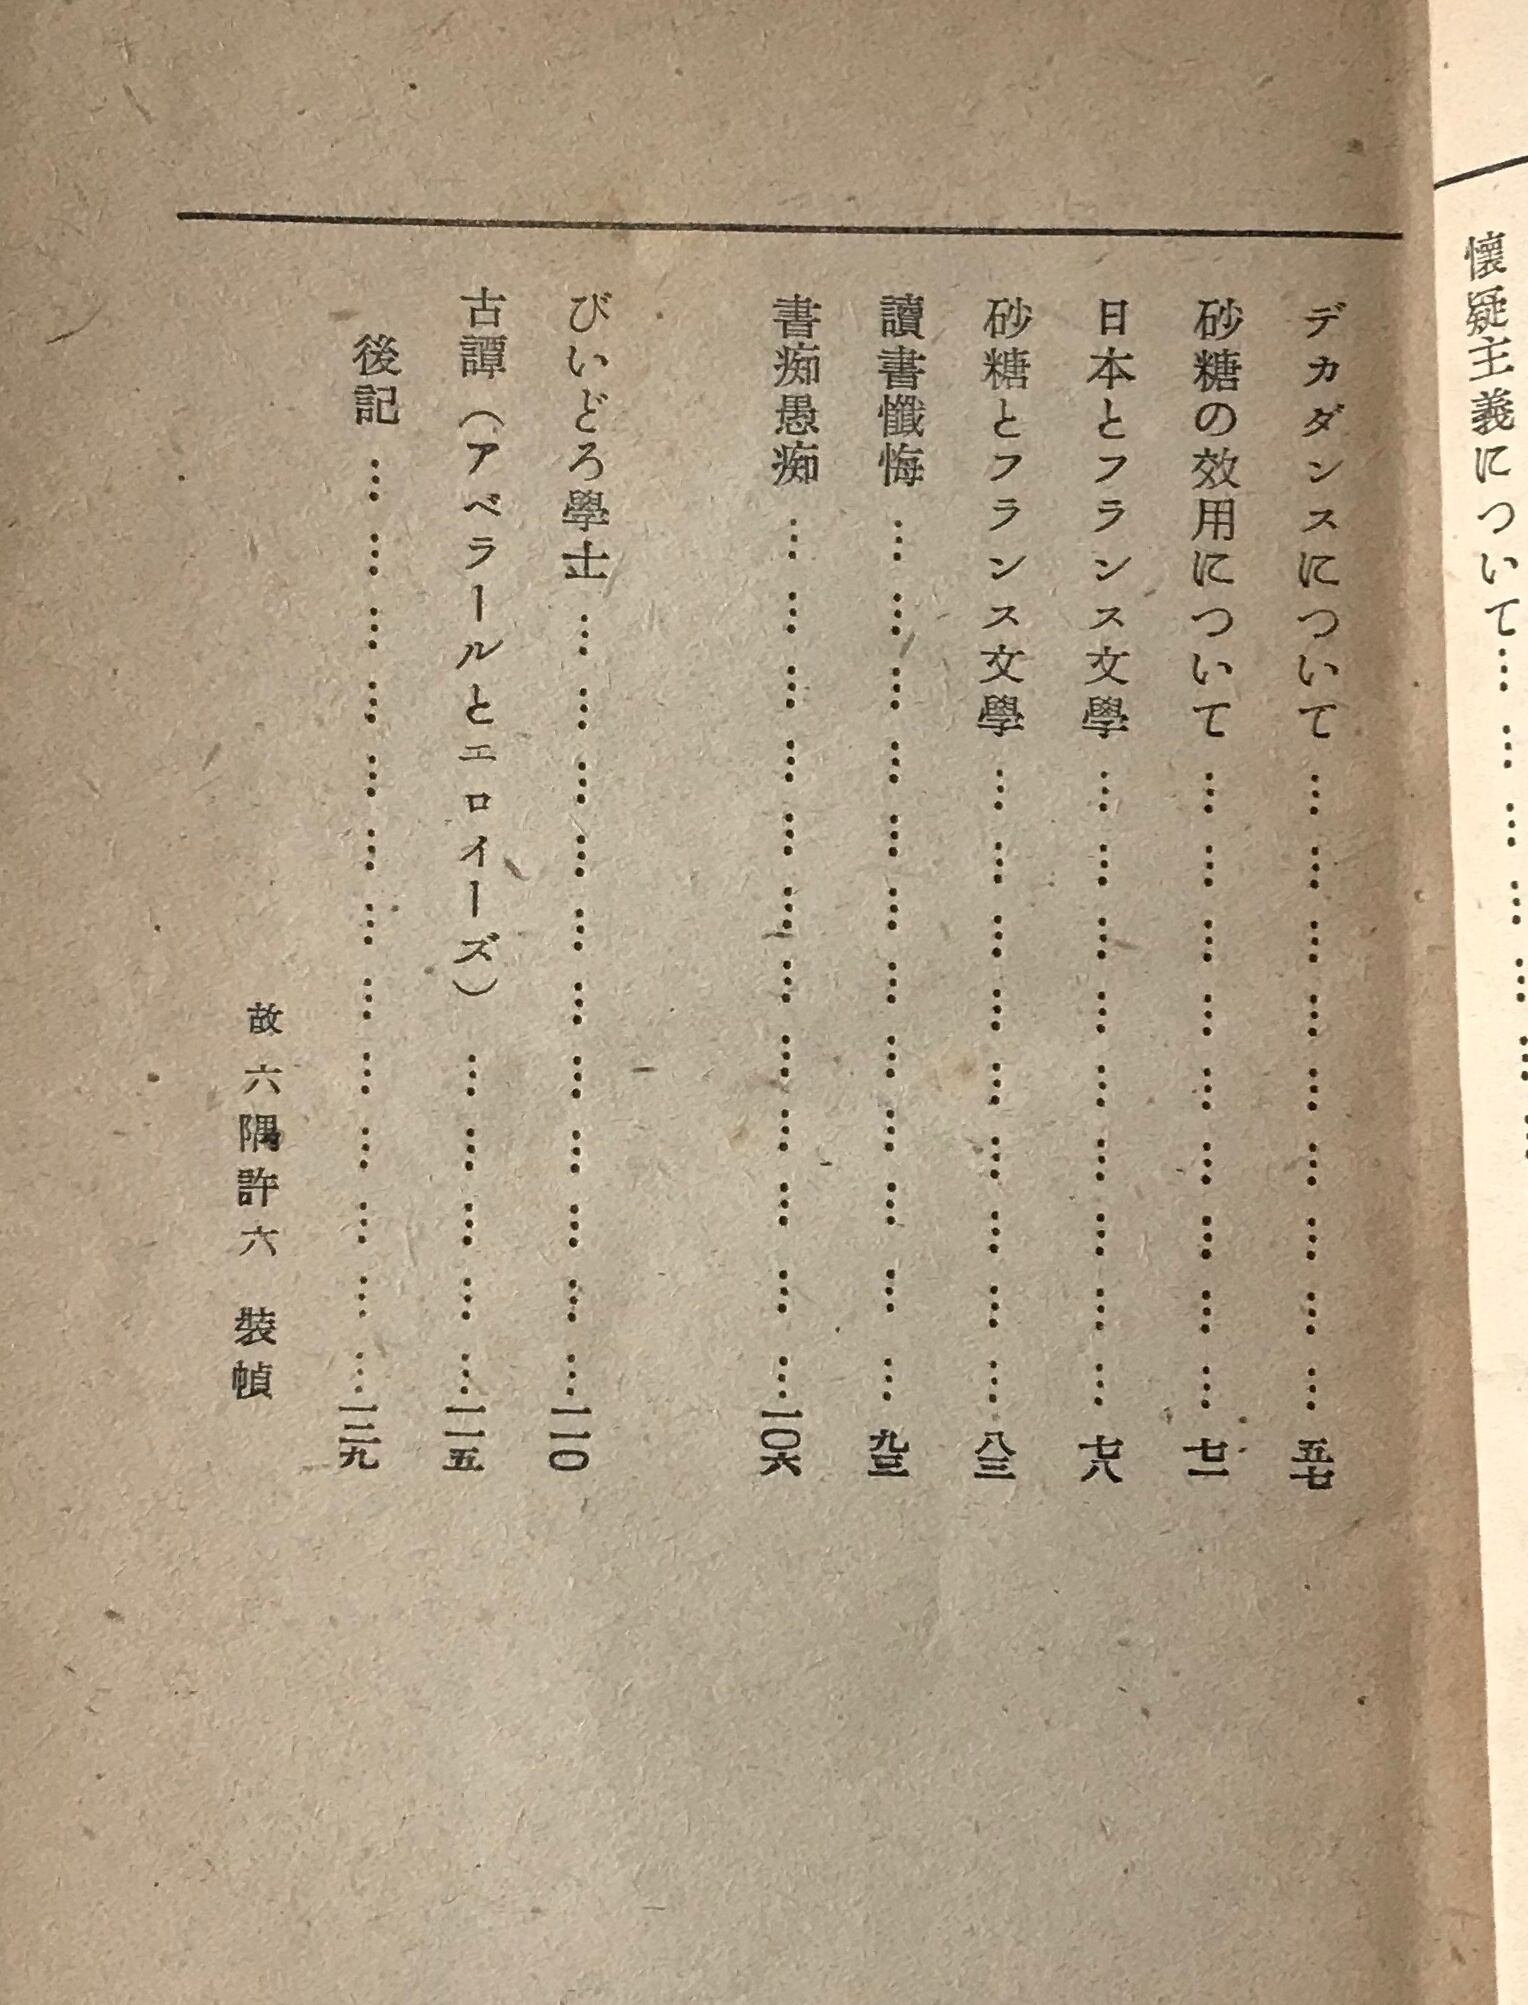 懷疑主義について………………
デカダンスについて…………………………五七
砂糖の效用について…………………………七一
日本とフランス文學…………………………七八
砂糖とフランス文學…………………………八三
讀書懺悔……………………………………九三
書痴愚痴……………………………………一〇六
びいどろ學士………………………………一一〇
古譚（アベラールとエロイーズ）……………一一五
後記…………………………………………一二九
故 六隅許六 裝幀